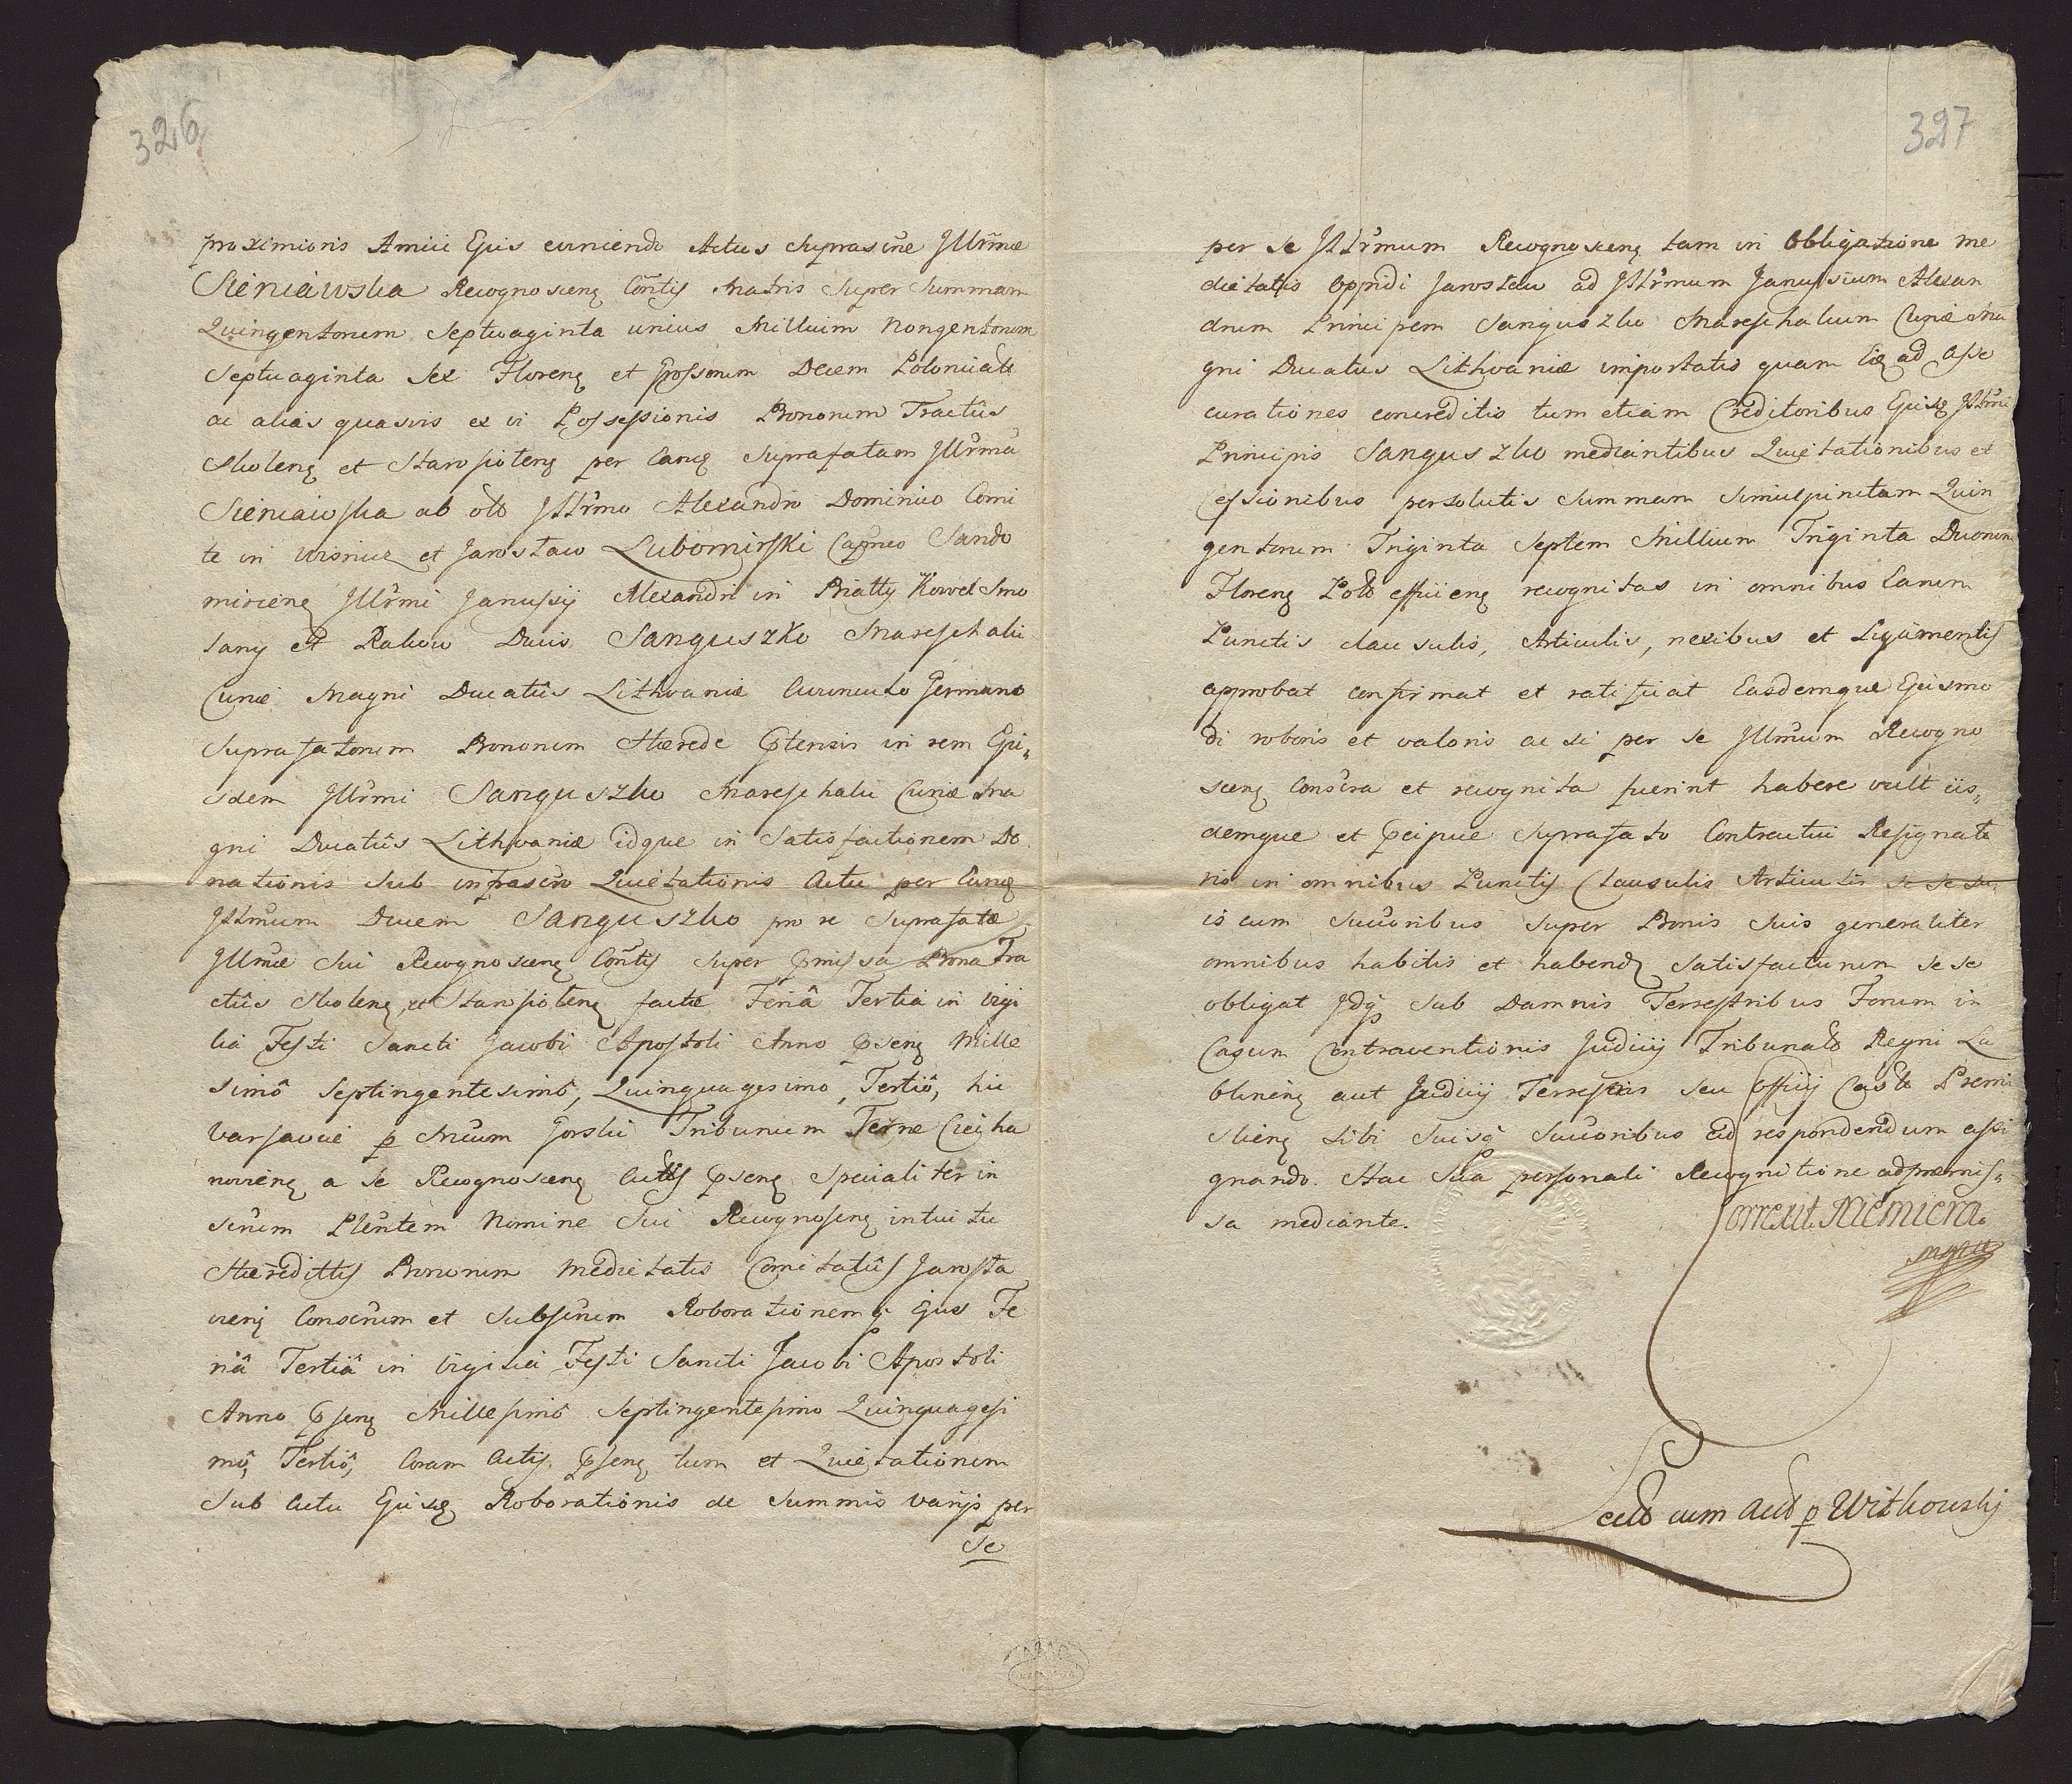 326
proximioris Amici Ejus euniendo Actus suprascrĩe Jllrm̃æ
Sieniawska Recognoscenꝫ Con̄tis Matris super Summam
Quingentorum Septuaginta unius Millium Nongentorum
Septuaginta Sex Florenꝫ et Grossorum Decem Polonicali
ac alias quasvis ex vi Possessionis Bonorum Tractûs
Skolenꝫ et Starosioltenꝫ per Eanꝫ suprafatam Jllrm̃ã
Sieniawska ab olb Jllr̃mo Alexandro Dominico Comi
te in Wisnicz et Jarosław Lubomirski Capneo Sando
mirienꝫ Jllr̃mi Janussij Alexandri in Białty Kowel Smo
lany et Rakow Ducis Sanguszko Mareschalci
Curiæ Magni Ducatûs Lithvaniæ Avunculo Germano
Suprafatorum Bonorum Hærede Ꝓtensis in rem Eju„
sdem Jllr̃mi Sanguszko Mareschalci Curiæ Ma
gni Ducatûs Lithvaniæ idque in Satisfactionem Do
nationis sub infrascr̃o Quietationis Actu per Eunꝫ
Jllr̃mum Ducem Sanguszko pro re Suprafatæ
Jllr̃mæ sui Recognoscenꝫ Con̄tis super ꝓmissa Bona Tra
ctûs Skolenꝫ et Starosioltenꝫ factæ Feriâ Tertiâ in vigi
lia Festi Sancti Jacobi Apostoli Anno ꝓsenꝫ Mille
simô Septingentesimô, Quinquagesimô, Tertiô, hic
Varsaviæ ꝑ Mr̃cum Gorski Tribunum Ter̃ræ Ciecha
novienꝫ a se Recognoscenꝫ Actis ꝓsenꝫ Specialiter in
scr̃um Pleñtem Nomine Sui Recognoscenꝫ intuitu
Hæredittis Bonorum Medietatis Comitatûs Jarosła
vienꝫ Conscr̃um et Subscr̃um Roborationemq̃ Ejus Fe
riâ Tertiâ in vigilia Festi Sancti Jacobi Apostoli
Anno ꝓsenꝫ Millesimô Septingentesimo Quinquagesi
mô, Tertiô, Coram Actis ꝓsenꝫ tum et Quietationem
Sub Actu Ejusꝫ Roborationis de Summis varijs per
Se
327
per se Jllr̃mum Recognoscenꝫ tam in Obligatione me
dietatis Oppidi Jarosław ad Jllr̃mum Janussium Alexan
drum Principem Sanguszko Mareschalcum Curiæ Ma
gni Ducatus Lithvaniæ importatis quam Eiꝫ ad Asse
curationes concreditis tum etiam Creditoribus Ejusꝫ Jllr̃mi
Principis Sanguszko mediantibus Quietationibus et
Cessionibus persolutis Summam Simulpunctam Quin
gentorum Triginta Septem Millium Triginta Duorum
Florenꝫ Polo efficienꝫ recognitas in omnibus Earum
Punctis clausulis, Articulis, nexibus et Ligamentis
approbat confirmat et ratificat Easdemque Ejusmo
di roboris et valoris ac si per se Jllr̃mum Recogno
scenꝫ Conscr̃a et recognita fuerint habere vult iis„
demque et ꝓcipue Suprafato Contractui Resignato
rio in omnibus Punctis Clausulis Articulis se se su„
is cum Succ̃oribus super Bonis Suis generaliter
omnibus habitis et habendꝫ satisfacturum se se
obligat Jdq̃ Sub Damnis Terrestribus Forum in
Casum Contraventionis Judicij Tribunalo Regni Lu
blinenꝫ aut Judicij Terrestris seu Officij Castr Premi
slienꝫ Sibi Suisq̃ Succ̃oribus ad respondendum assi
gnando. Hac Sua personali Recognitione ad præmis„
sa mediante.
Correxit. Niemiera.
mpria
Lecto cum Acto ꝑ Witkowskj